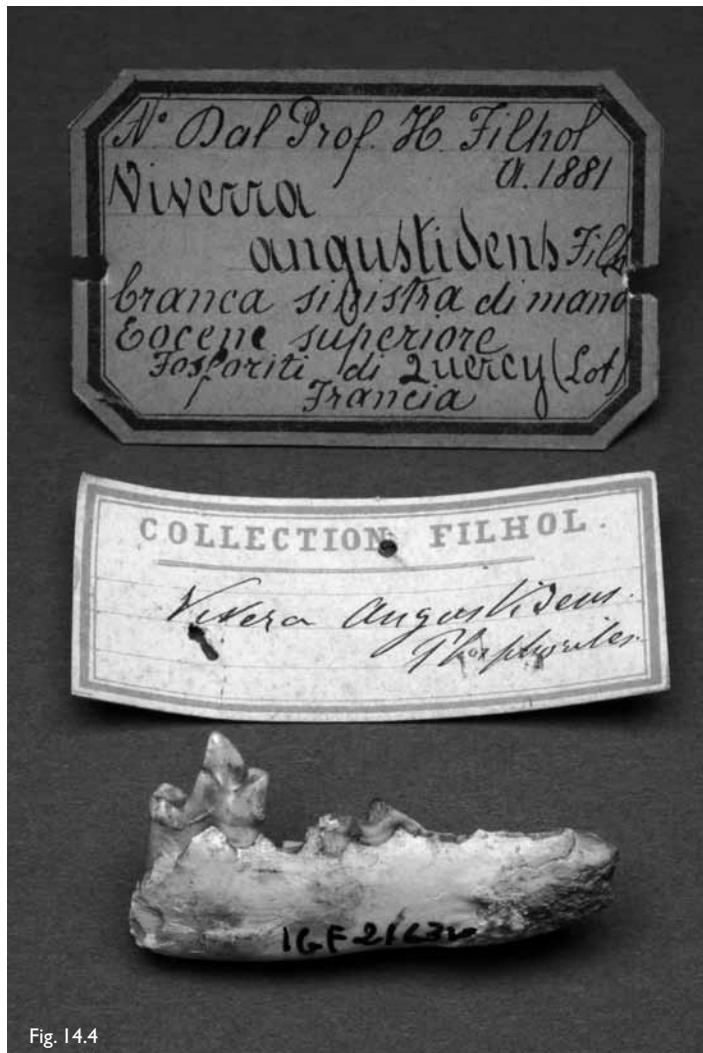 N° Dal Prof. H. Filhol
A. 1881
Viverra
angustidens Filh
branca sinistra di mand
Eocene superiore
Fosforiti di Quercy (Lot)
Francia
COLLECTION FILHOL.
Vivera Angustidens.
Phosphorites.
Fig. 14.4